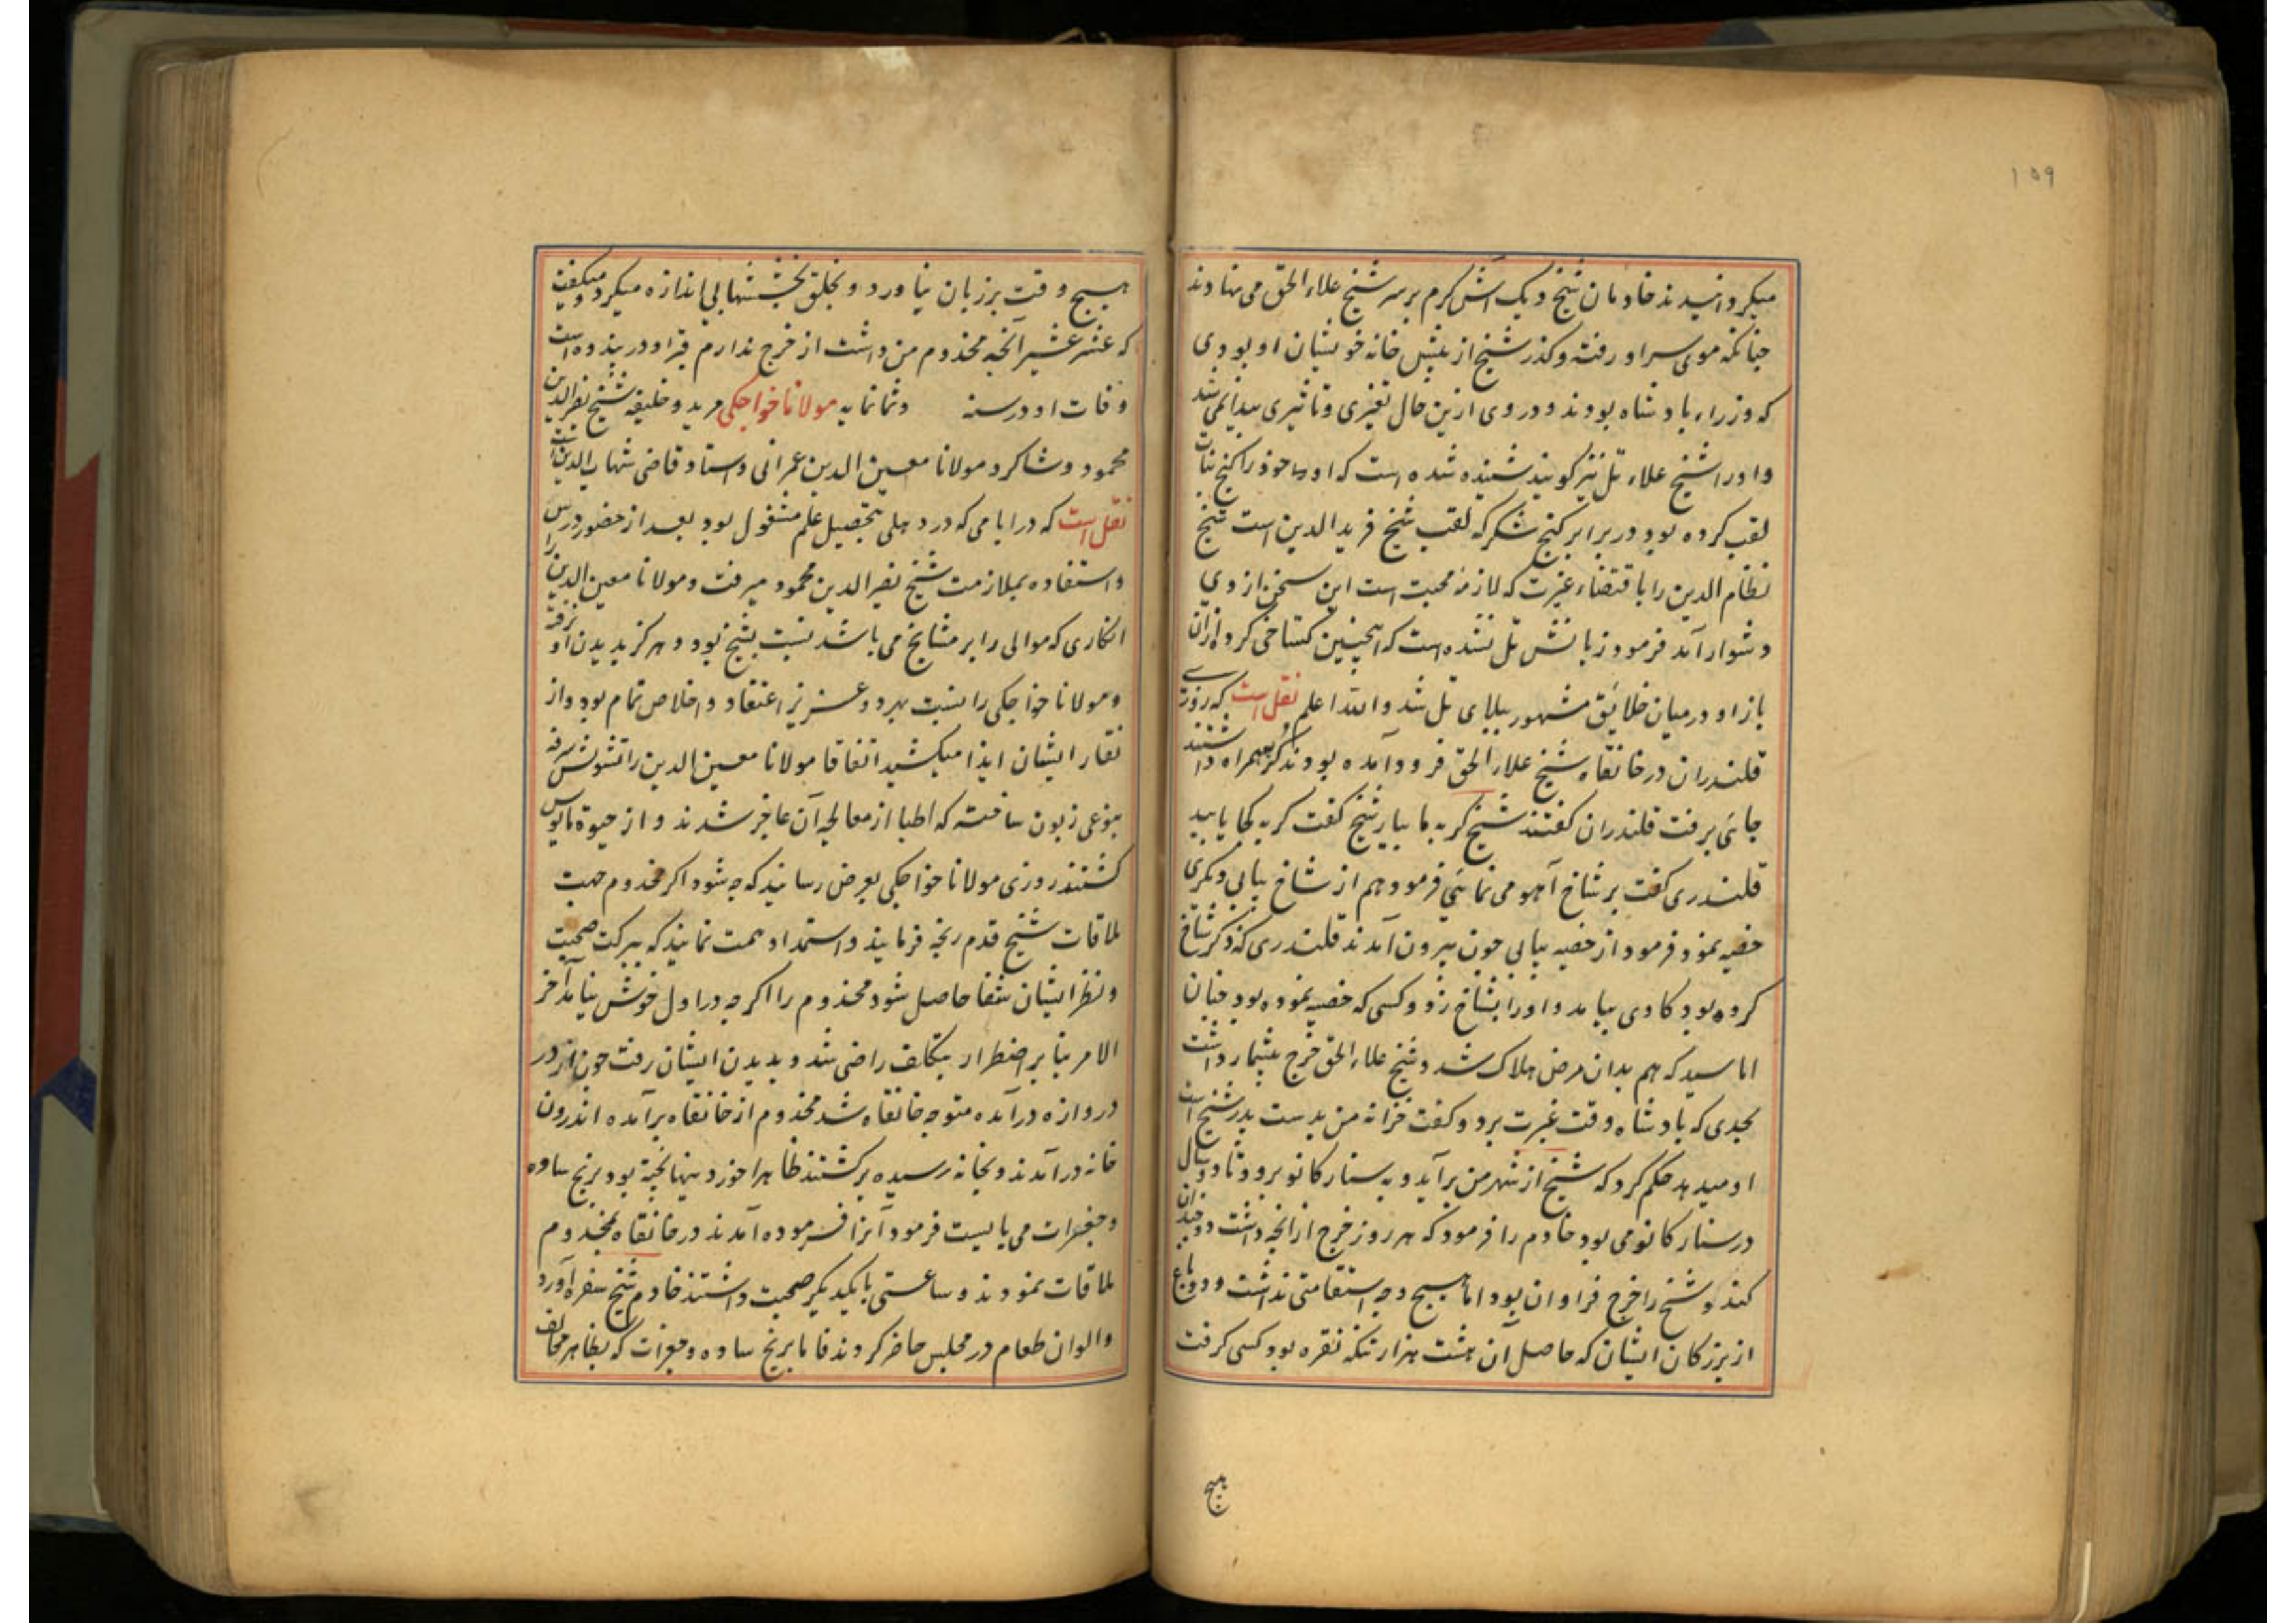 ۱۵۹
میکردانیدند خادمان شیخ دیک آش کرم بر سر شیخ علاء الحق می نهادند
جنانکه موی سر او رفته و کذر شیخ از پیش خانه خویشان او بودی
که وزراء بادشاه بودند و در وی ازین حال تغیری و تاثیری پیدا نمی شد
و او را شیخ علاء نل نیز کویند شنیده شده است که او خود را کنج نبات
لقب کرده بود در برابر کنج شکر که لقب شیخ فرید الدین است شیخ
نظام الدین را باقتضاء غیرت که لازمه محبت است این سخن از وی
دشوار آمد فرمود زبانش نل نشده است که اینچنین کستاخی کرد ازان
باز او در میان خلائق مشهور ببلای نل شد والله اعلم نقل است که روزی
قلندران در خانقاه شیخ علاء الحق فرود آمده بودند کربه همراه داشتند
جائی برفت قلندران کفتند شیخ کربه ما بیار شیخ کفت کربه کجا یابید
قلندری کفت بر شاخ آهو می نمائی فرمود هم از شاخ یابی دیکری
خصیه نمود فرمود از خصیه یابی جون بیرون آمدند قلندری که ذکر شاخ
کرده بود کاوی بیامد و او را بشاخ زد و کسی که خصیه نموده بود جنان
اماسید که هم بدان مرض هلاک شد و شیخ علاء الحق خرج بیشمار داشت
بحدی که بادشاه وقت غیرت برد و کفت خزانه من بدست پدر شیخ است
او میدهد حکم کرد که شیخ از شهر من برآید و به سنارکانو برود تا دو سال
در سنارکانو می بود خادم را فرمود که هر روز خرج از آنچه داشت دو جندان
کند و شیخ را خرج فراوان بود اما هیچ وجه استقامتی نداشت و دو باغ
از بزرکان ایشان که حاصل آن هشت هزار تنکه نقره بود کسی کرفت
هیچ
هیچ وقت بر زبان نیاورد و بخلق بخششهای بی اندازه میکرد و میکفت
که عشر عشیر آنچه مخدوم من داشت از خرج ندارم قبر او در پندوه است
وفات او در سنه وثمانمایه مولانا خواجکی مرید و خلیفه شیخ نصیر الدین
محمود و شاکرد مولانا معین الدین عمرانی و استاد قاضی شهاب الدین است
نقل است که در ایامی که در دهلی بتحصیل علم مشغول بود بعد از حضور درس
و استفاده بملازمت شیخ نصیر الدین محمود میرفت و مولانا معین الدین را
انکاری که موالی را بر مشایخ می باشد نسبت بشیخ بود و هرکز بدیدن او نرفته
و مولانا خواجکی را نسبت بهر دو عزیز اعتقاد و اخلاص تمام بود و از
نقار ایشان ایذا میکشید اتفاقا مولانا معین الدین را تشویش سرفه
بنوعی زبون ساخت که اطبا از معالجه آن عاجز شدند و از حیوة مایوس
کشتند روزی مولانا خواجکی بعرض رسانید که جه شود اکر مخدوم جهت
ملاقات شیخ قدم رنجه فرمایند و استمداد همت نمایند که ببرکت صحبت
و نظر ایشان شفا حاصل شود مخدوم را اکرجه در اول خوش نیامد آخر
الامر بنا بر اضطرار بتکلف راضی شد و بدیدن ایشان رفت جون از در
دروازه درآمده متوجه خانقاه شد مخدوم از خانقاه برآمده اندرون
خانه درآمدند و بخانه رسیده برکشتند ظاهرا خورد نیها پخته بود برنج ساده
و جغرات می بایست فرمود آنرا فرموده آمدند در خانقاه بمخدوم
ملاقات نمودند و ساعتی بایکدیکر صحبت داشتند خادم شیخ سفره آورد
و الوان طعام در مجلس حاضر کردند فاما برنج ساده و جغرات که بظاهر مخالف